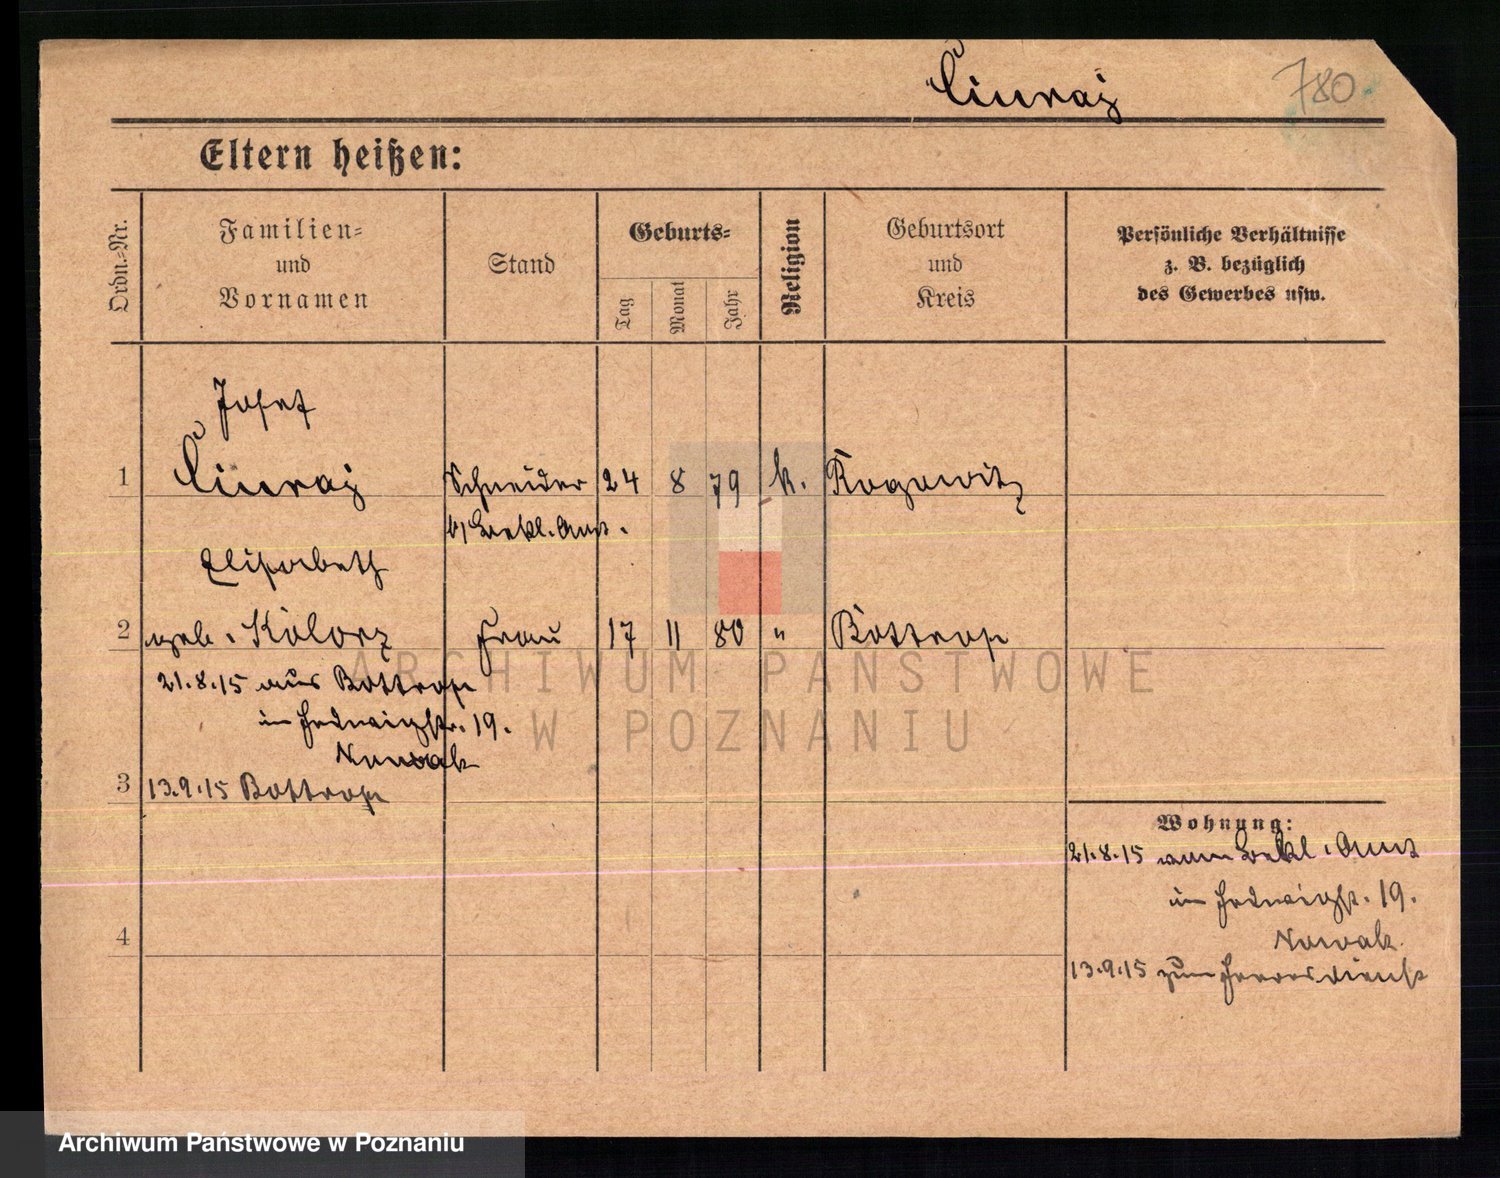 Ciuraj 780
Eltern heißen:
Ordn.-Nr.
Familien-
und
Vornamen
Stand
Geburts-
Tag
Monat
Jahr
Religion
Geburtsort
und
Kreis
Persönliche Verhältnisse
z. B. bezüglich
des Gewerbes usw.
Josef
1 Ciuraj Schneider 24 8 79 k. Rogowitz
b/ Bekl. Amt.
Elisabeth
2 geb. Kolorz Frau 17 11 80 " Bottrop
21.8.15 aus Bottrop
in Hedwigstr. 19.
Nowak
3 13.9.15 Bottrop
Wohnung:
21.8.15 vom Bekl. Amt
in Hedwigstr. 19.
Nowak.
13.9.15 zum Heeresdienst
4
ARCHIWUM PAŃSTWOWE
W POZNANIU
Archiwum Państwowe w Poznaniu